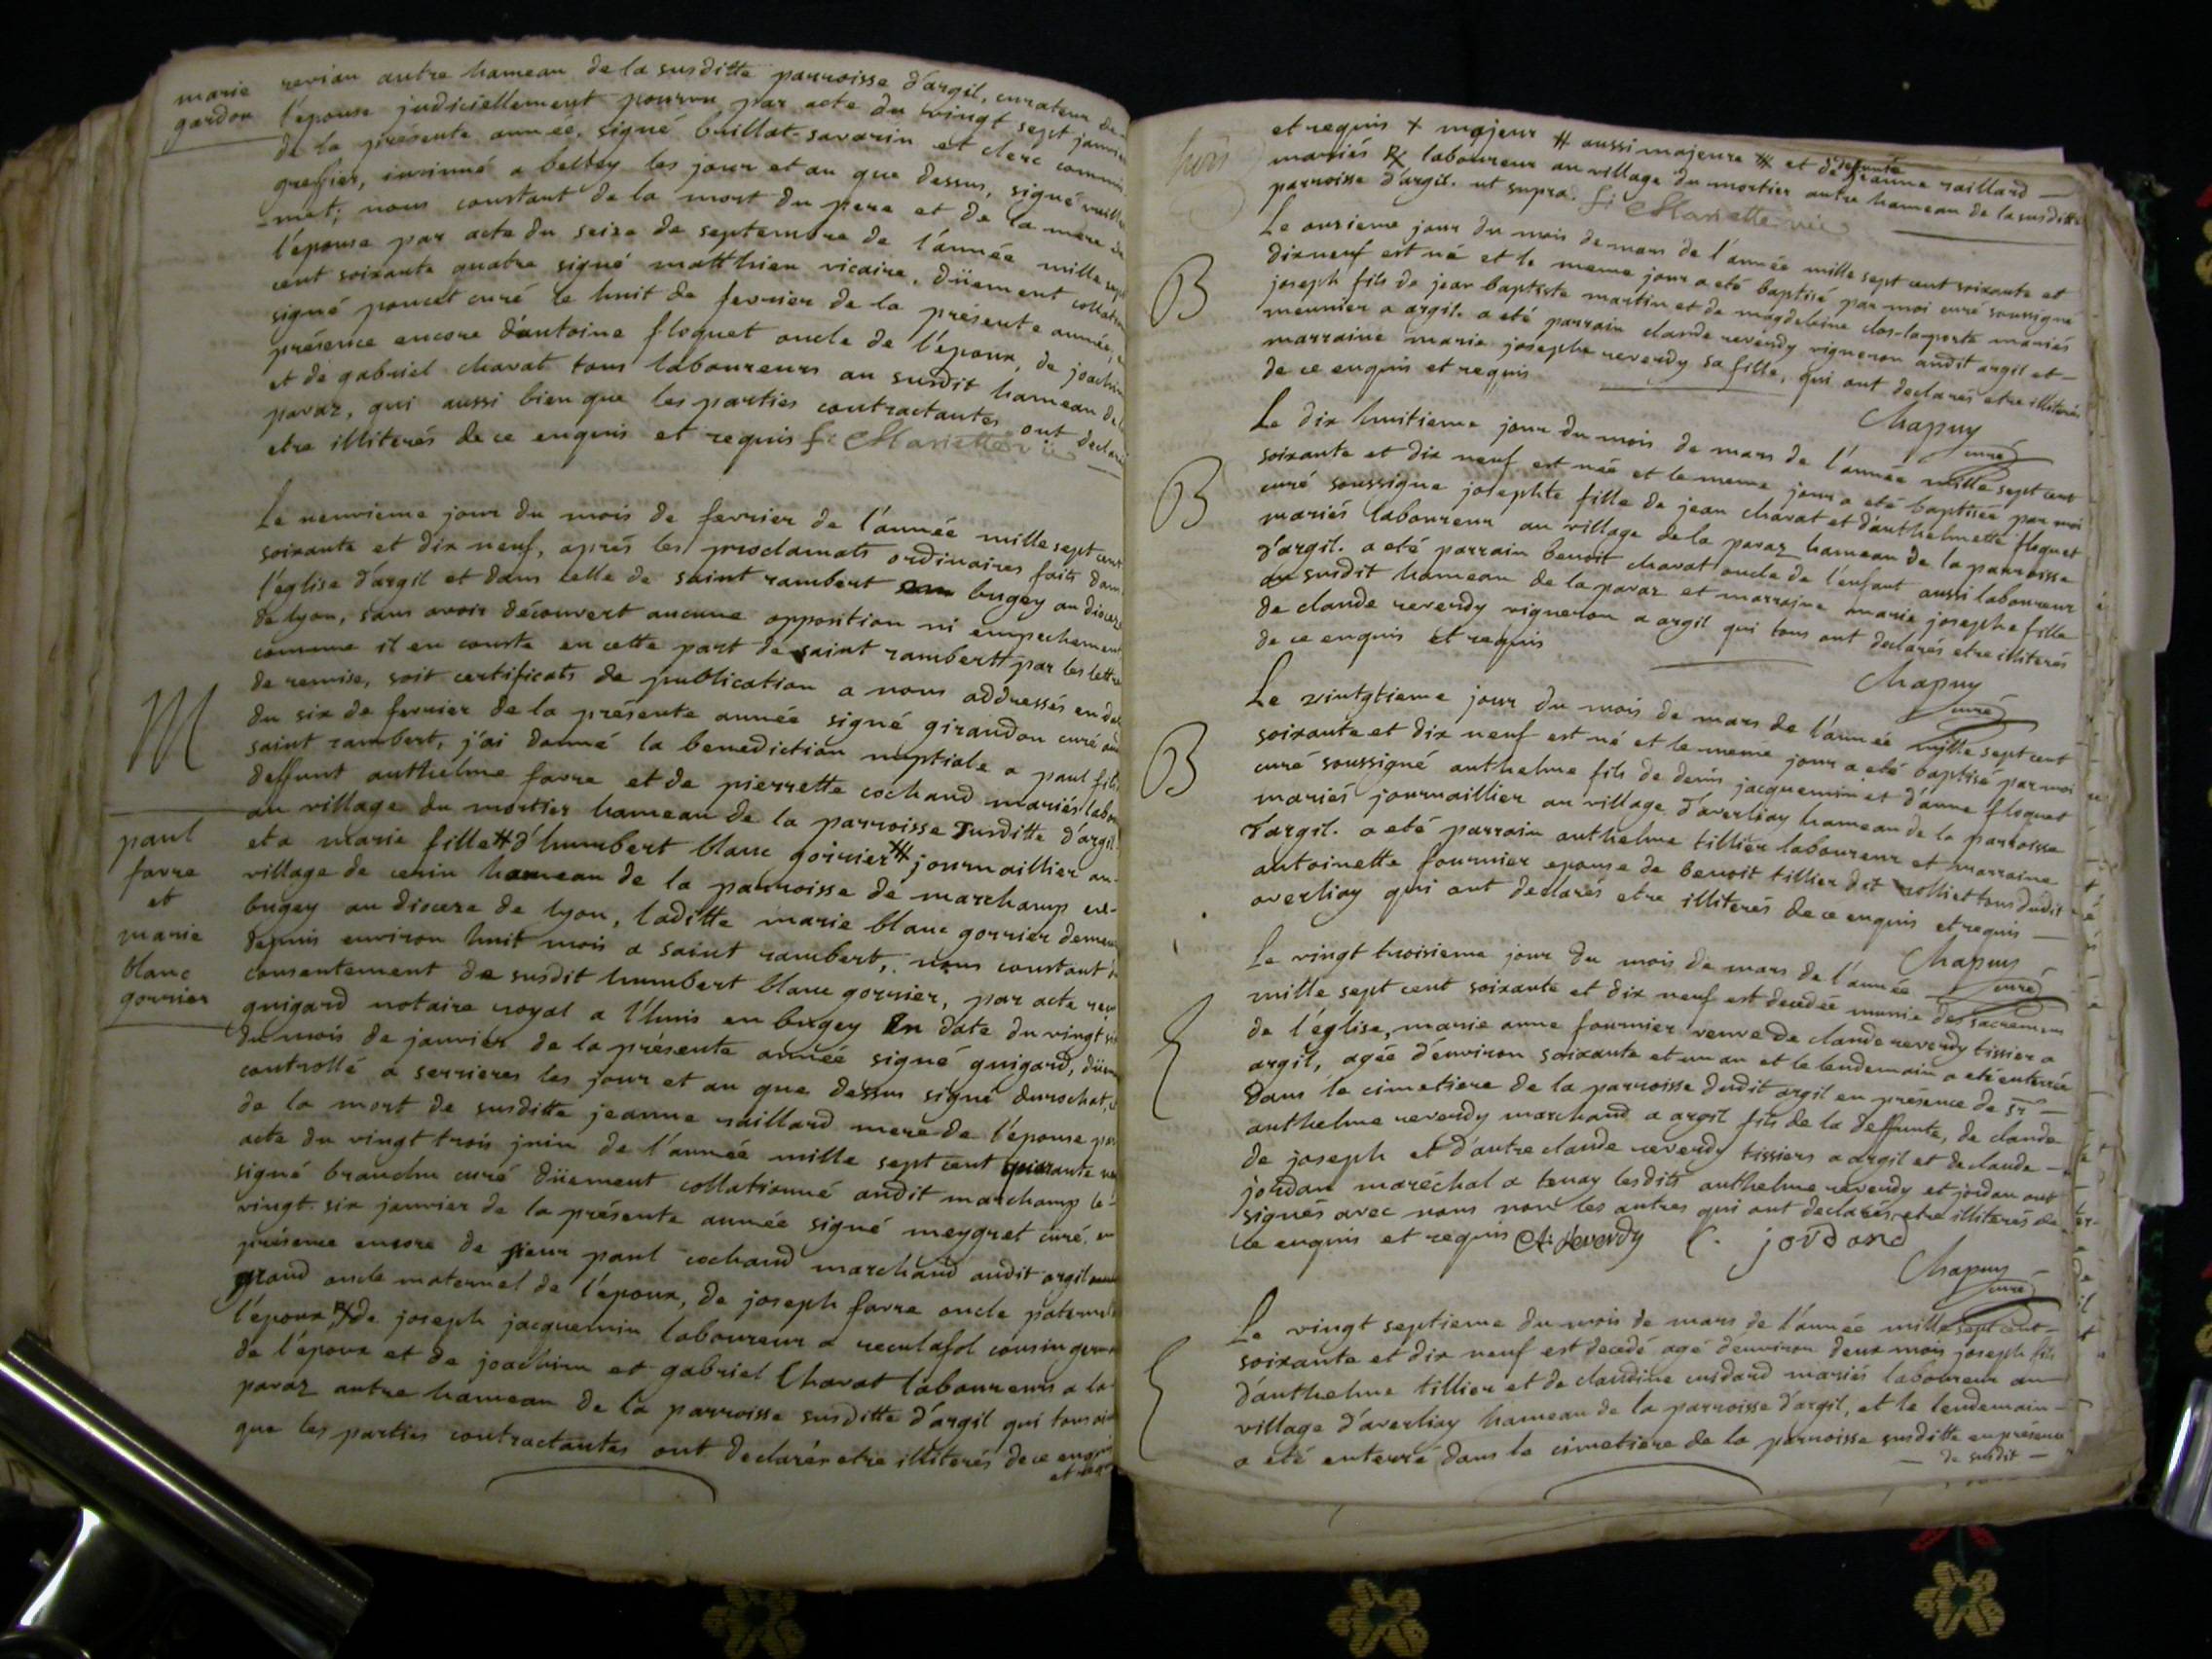 marie
gardon
revian autre hameau de la susditte parroisse d'argil, curateur de
l'épouse judiciellement pourvu par acte du vingt sept janvier
de la présente année, signé brillat-savarin et clerc commis
greffier, insinué a belley les jour et an que dessus, signé
-met; nous constant de la mort du pere et de la mere de
l'épouse par acte du seize de septembre de l'année mille sept
cent soixante quatre signé matthieu vicaire, düement collationé
signé poncet curé le huit de fevrier de la présente année, en
présence encore d'antoine floquet oncle de l'époux, de joachim
et de gabriel charat tous laboureurs au susdit hameau de la
paraz, qui aussi bien que les parties contractantes ont declaré
etre illiterés de ce enquis et requis f: Mariette vic
Le neuvieme jour du mois de fevrier de l'année mille sept cent
soixante et dix neuf, aprés les proclamats ordinaires faits dans
l'église d'argil et dans celle de saint rambert bugey au diocèze
de lyon, sans avoir découvert aucune opposition ni empechement
comme il en conste en cette part de saint rambert par les lettres
de remise, soit certificats de publication a nous addressés en
du six de fevrier de la présente année signé girandon curé
saint rambert, j'ai donné la benediction nuptiale a paul fils
M
deffunt anthelme favre et de pierrette cochand mariés
au village du mortier hameau de la parroisse susditte d'argil
paul
favre
et
marie
blanc
gorrier
et a marie fille # d'humbert blanc goirrier # journaillier au
village de cerin hameau de la parroisse de marchamp en
bugey au diocèze de lyon, laditte marie blanc gorrier
depuis environ huit mois a saint rambert, nous constant
consentement de susdit humbert blanc gorrier, par acte
guigard notaire royal a l'huis en bugey En date du vingt
du mois de janvier de la présente année signé guigard, düe
controllé a serrieres les jour et an que dessus signé durochat,
de la mort de susditte jeanne raillard mere de l'épouse par
acte du vingt trois juin de l'année mille sept cent
signé branchu curé düement collationné audit marchamp le
vingt six janvier de la présente année signé meygret curé, en
présence encore de sieur paul cochand marchand audit argil
grand oncle maternel de l'époux, de joseph favre oncle paternel
l'époux de joseph jacquemin laboureur a reculafol cousin germain
de l'époux et de joachim et gabriel Charat laboureurs a la
paraz autre hameau de la parroisse susditte d'argil qui tous
que les parties contractantes ont declarés etre illiterés de ce enquis
et requis
et requis + majeur # aussi majeure # et de deffunte jeanne raillard
mariés laboureur au village du mortier autre hameau de la susditte
parroisse d'argil. ut supra. f: Mariette vic
B
Le onzieme jour du mois de mars de l'année mille sept cent soixante et
dix neuf est né et le meme jour a eté baptisé par moi curé soussigné
joseph fils de jean baptiste martin et de magdeleine clos-laporte mariés
meunier a argil. a eté parrain claude reverdy vigneron audit argil et
marraine marie josephe reverdy sa fille, qui ont declarés etre illiterés
de ce enquis et requis
Chapuy
curé
B
Le dix huitieme jour du mois de mars de l'année mille sept cent
soixante et dix neuf est née et le meme jour a eté baptisée par moi
curé soussigne josephte fille de jean charat et d'anthelmette floquet
mariés laboureur au village de la paraz hameau de la parroisse
d'argil. a eté parrain benoit charat oncle de l'enfant aussi laboureur
au susdit hameau de la paraz et marraine marie josephe fille
de claude reverdy vigneron a argil qui tous ont declarés etre illiterés
de ce enquis et requis
Chapuy
curé
B
Le vintgtieme jour du mois de mars de l'année mille sept cent
soixante et dix neuf est né et le meme jour a eté baptisé par moi
curé soussigné anthelme fils de denis jacquemin et d'anne floquet
mariés journaillier au village d'averliay hameau de la parroisse
d'argil. a eté parrain anthelme tillier laboureur et marraine
antoinette fournier epouse de benoit tillier dit tous dudit
averliay qui ont declarés etre illiterés de ce enquis et requis
Chapuy
curé
Le vingt troisieme jour du mois de mars de l'année
mille sept cent soixante et dix neuf est decedée munie des sacremens
de l'église, marie anne fournier veuve de claude reverdy tissier a
argil, agée d'environ soixante et un an et le lendemain a eté enterrée
dans le cimetiere de la parroisse dudit argil en présence de sr
anthelme reverdy marchand a argil fils de la deffunte, de claude
de joseph et d'autre claude reverdy tissiers a argil et de claude
jordan maréchal a tenay lesdits anthelme reverdy et jordan ont
signés avec nous non les autres qui ont declarés etre illiterés de
ce enquis et requis A: Reverdy C. jordand
Chapuy
curé
Le vingt septieme du mois de mars de l'année mille sept cent
soixante et dix neuf est decedé agé denviron deux mois joseph fils
d'anthelme tillier et de claudine cuidard mariés laboureur au
village d'averliay hameau de la parroisse d'argil, et le lendemain
a été enterré dans le cimetiere de la parroisse susditte en présence
de susdit